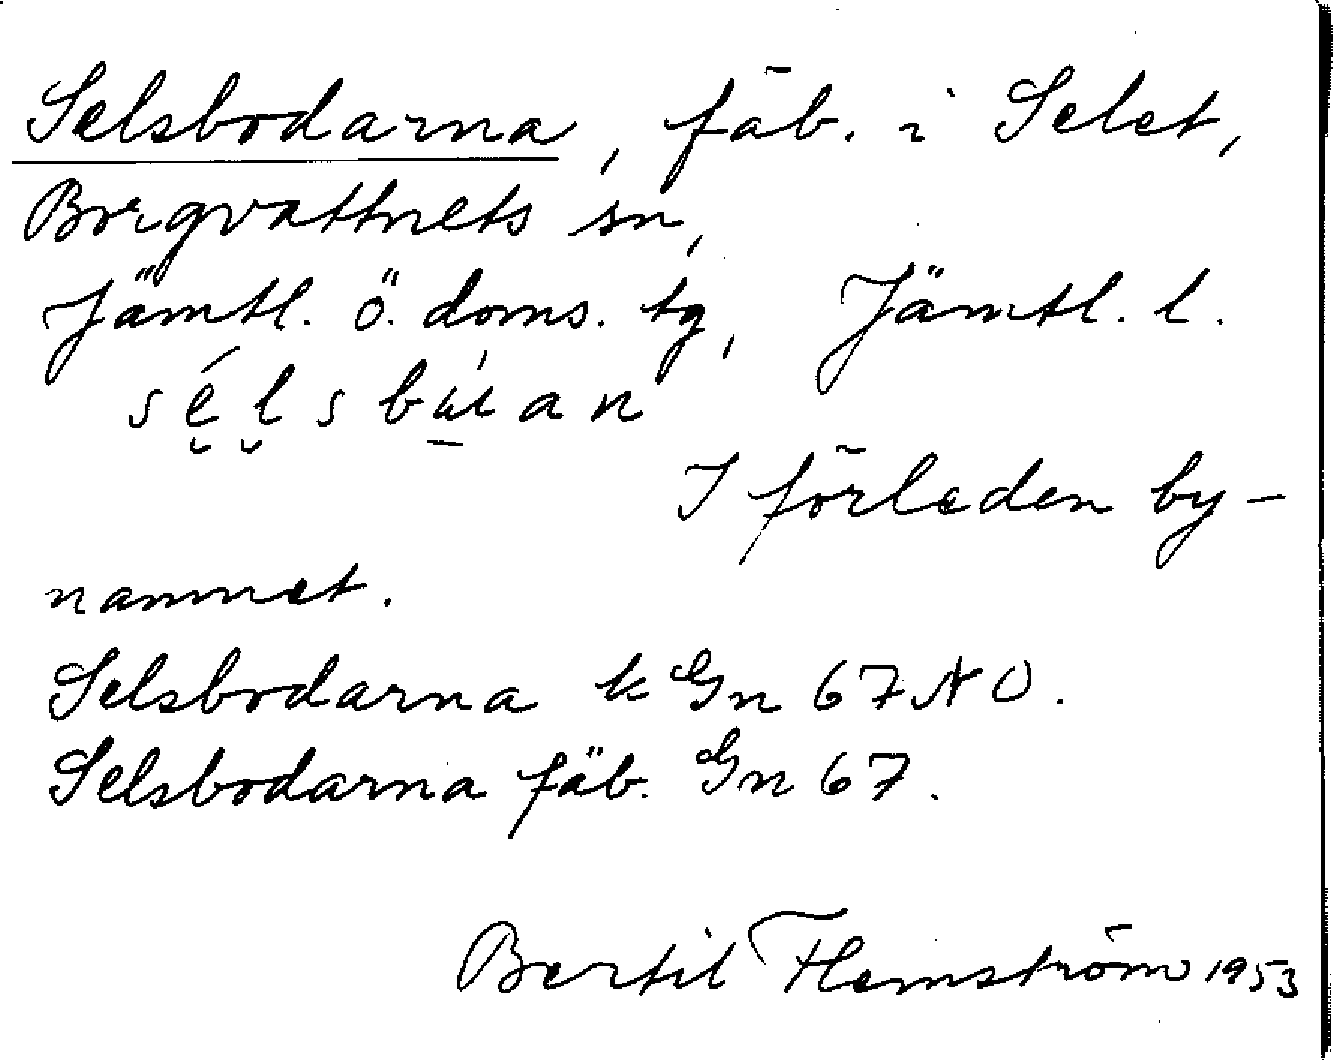 Selsbodarna, fäb. i Selet,
Borgvattnets sn,
Jämtl. ö. doms. tg, Jämtl. l.
I förleden by-
namnet.
Selsbodarna k Gn 67 NO.
Selsbodarna fäb. Gn 67.
Bertil Flemström 1953